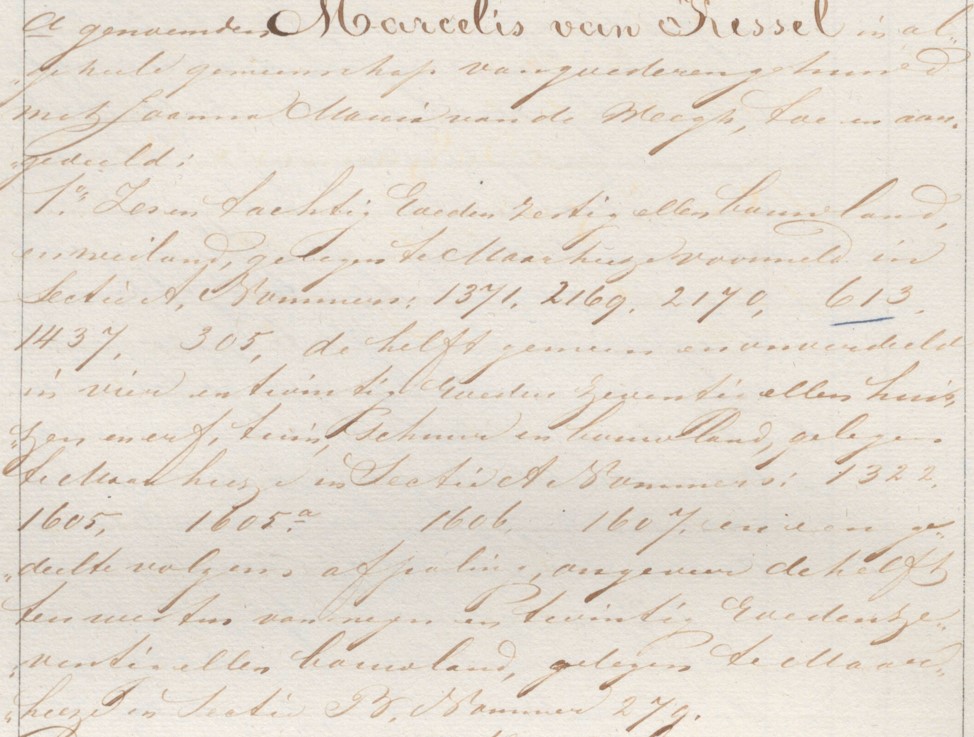 a genoemden Marcelis van Kessel in al„
„geheele gemeenschap van goederen gehuwd
met Joanna Maria van de Weegh, toe en aan„
„gedeeld:
1.° Zes en tachtig Roeden zestig ellen bouwland,
en weiland, gelegen te Maarheeze voormeld in
Sectie A, Nommers: 1371, 2169, 2170, 613,
1437, 305, de helft gemeen en onverdeeld
in vier en twintig Roeden zeventig ellen huis,
„zen en erf, tuin, schuur en bouwland, gelegen
te Maarheeze in Sectie A Nommers: 1322,
1605, 1605.a 1606, 1607, en een ge„
„deelte volgens afpaling, ongeveer de helft
ten westen van negen en twintig Roeden ze„
„ventig ellen bouwland, gelegen te Maar„
„heeze in Sectie B, Nommer 279.